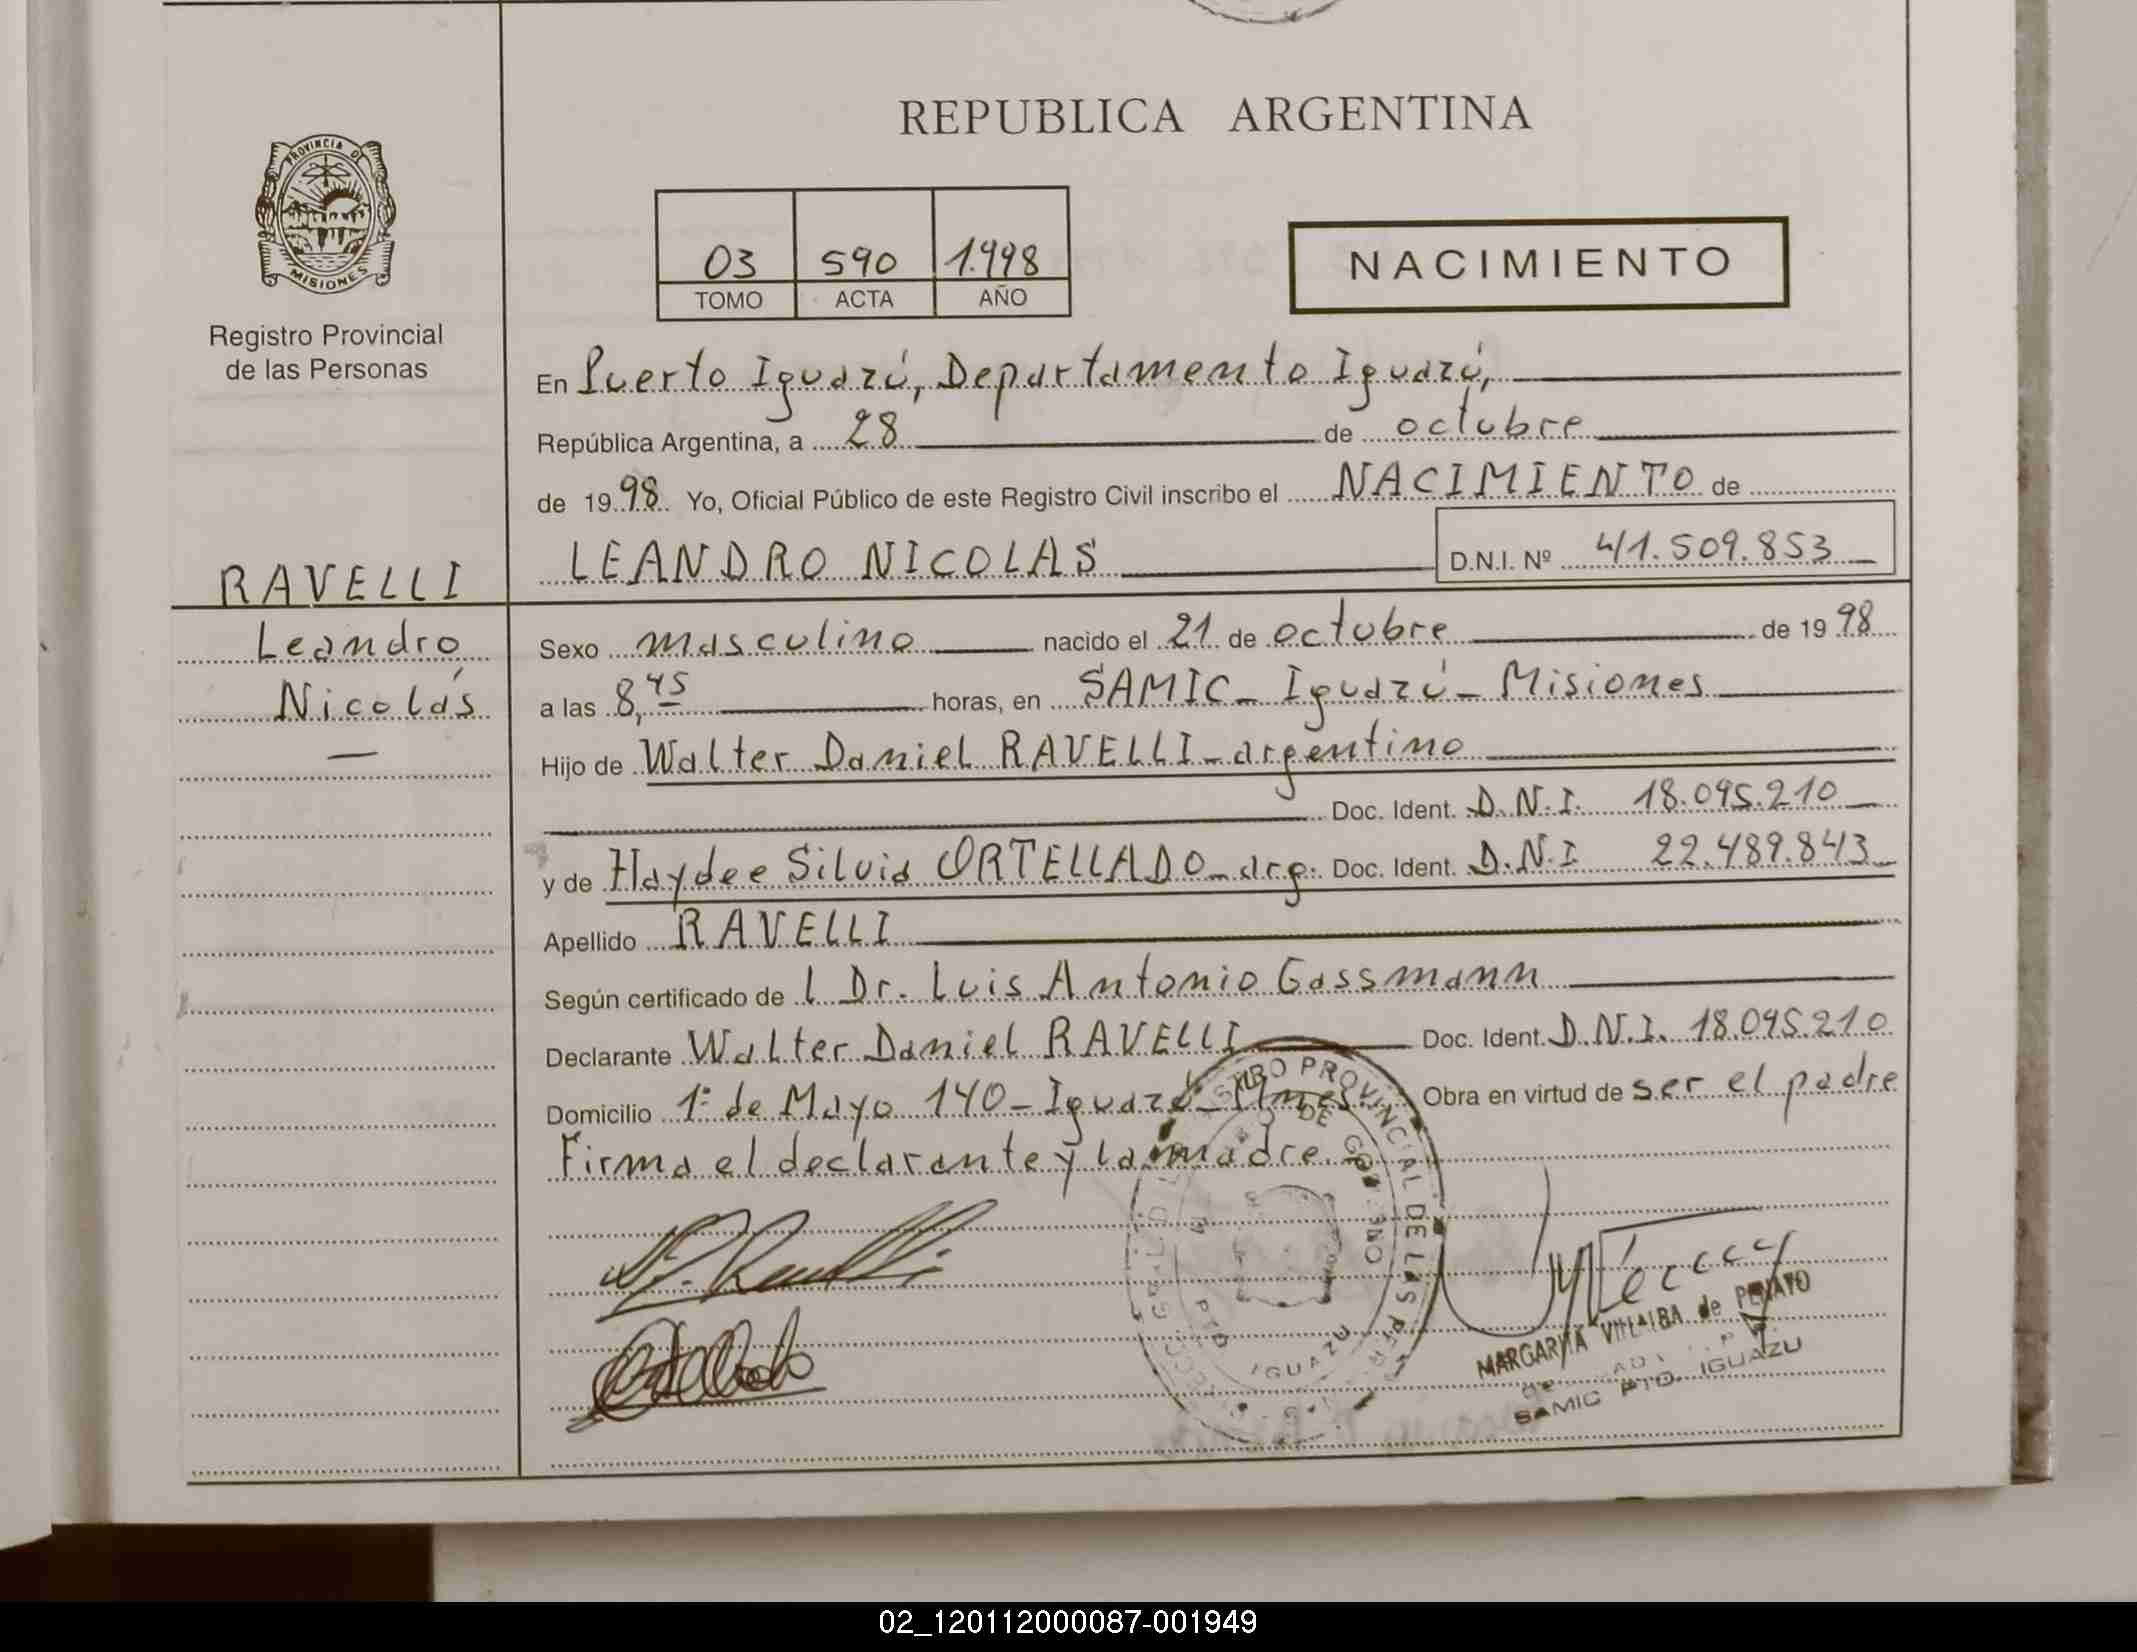 REPUBLICA ARGENTINA
PROVINCIA DE
MISIONES
Registro Provincial
de las Personas
03 590 1.998
TOMO ACTA AÑO
NACIMIENTO
En Puerto Iguazú, Departamento Iguazú,
República Argentina, a 28 de octubre
de 1998 Yo, Oficial Público de este Registro Civil inscribo el NACIMIENTO de
LEANDRO NICOLAS D.N.I. Nº 41.509.853
RAVELLI
Leandro
Nicolás
Sexo masculino nacido el 21 de octubre de 1998
a las 8,45 horas, en SAMIC - Iguazú - Misiones
Hijo de Walter Daniel RAVELLI - argentino
Doc. Ident. D.N.I. 18.095.210
y de Haydee Silvia ORTELLADO - arg. Doc. Ident. D.N.I 22.489.843
Apellido RAVELLI
Según certificado de l Dr. Luis Antonio Gassmann
Declarante Walter Daniel RAVELLI Doc. Ident. D.N.I. 18.095.210
Domicilio 1º de Mayo 140 - Iguazú - Mnes. Obra en virtud de ser el padre
Firma el declarante y la madre.
PROVINCIAL DE LAS
PTO IGUAZU
MARGARITA VILLALBA de
SAMIC PTO. IGUAZU
02_120112000087-001949